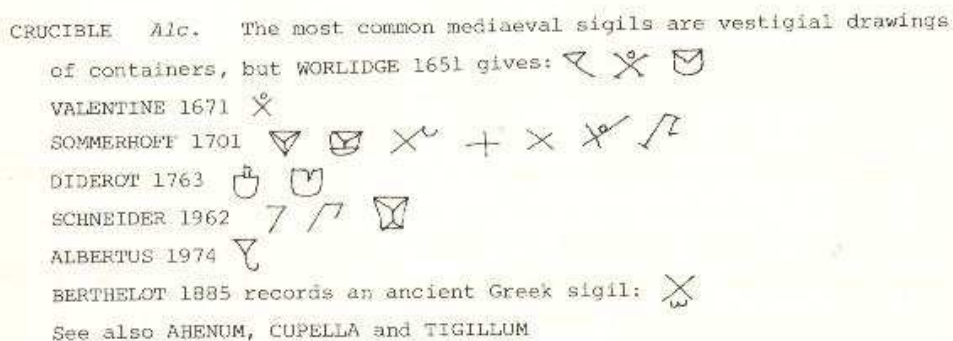 CRUCIBLE Alc. The most common mediaeval sigils are vestigial drawings
of containers, but WORLIDGE 1651 gives:
VALENTINE 1671
SOMMERHOFF 1701
DIDEROT 1763
SCHNEIDER 1962
ALBERTUS 1974
BERTHELOT 1885 records an ancient Greek sigil:
See also AHENUM, CUPELLA and TIGILLUM